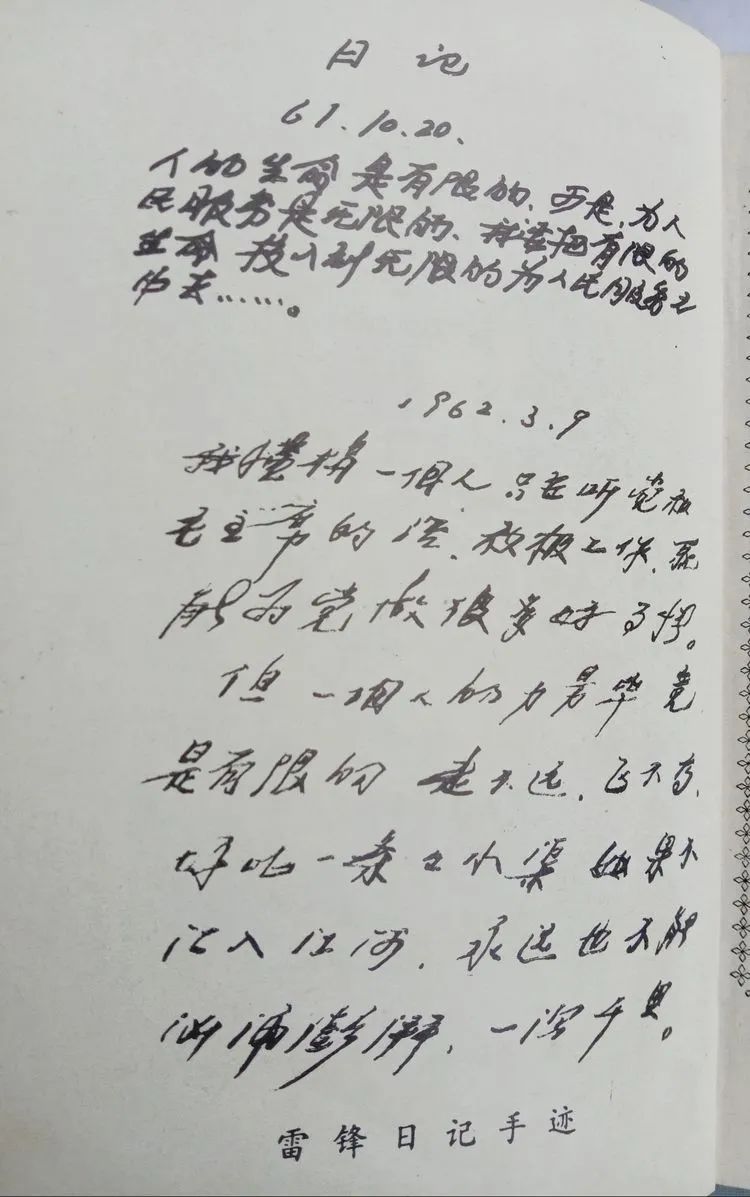 日记
61.10.20.
人的生命是有限的、可是、为人
民服务是无限的、我要把有限的
生命投入到无限的为人民服务之
中去……。
1962.3.9
我懂得一個人只要听党和
毛主席的话、积极工作、就
能为党做很多好事情。
但一個人的力量毕竟
是有限的走不远、飞不高、
好比一条小水渠如果不
汇入江河、永远也不能
汹涌澎湃、一泻千里。
雷锋日记手迹